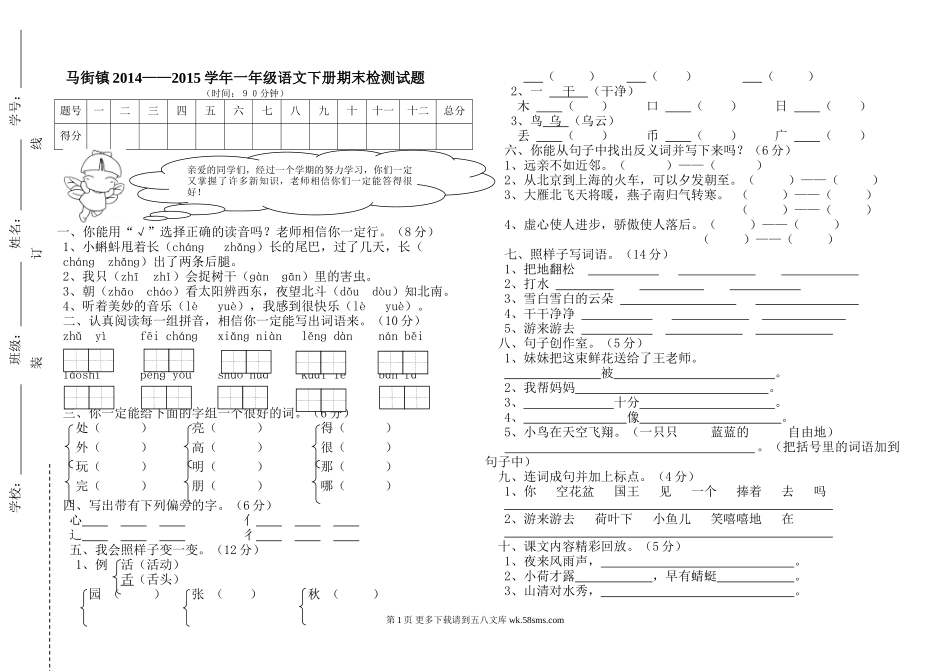 学号：
姓名：
班级：
学校：
线
订
装
马街镇 2014——2015 学年一年级语文下册期末检测试题
（时间：９０分钟）
题号 一 二 三 四 五 六 七 八 九 十 十一 十二 总分
得分
亲爱的同学们，经过一个学期的努力学习，你们一定
又掌握了许多新知识，老师相信你们一定能答得很
好！
一、你能用“√”选择正确的读音吗？老师相信你一定行。（8 分）
1、小蝌蚪甩着长（cháng zhǎng）长的尾巴，过了几天，长（
cháng zhǎng）出了两条后腿。
2、我只（zhī zhǐ）会捉树干（gàn gān）里的害虫。
3、朝（zhāo cháo）看太阳辨西东，夜望北斗（dǒu dòu）知北南。
4、听着美妙的音乐（lè yuè），我感到很快乐（lè yuè）。
二、认真阅读每一组拼音，相信你一定能写出词语来。（10 分）
zhǔ yì fēi cháng xiǎng niàn lěng dàn nán běi
lǎoshī péng you shuō huà kuài lè bàn fǎ
三、你一定能给下面的字组一个很好的词。（6 分）
处（ ） 亮（ ） 得（ ）
外（ ） 高（ ） 很（ ）
玩（ ） 明（ ） 那（ ）
完（ ） 朋（ ） 哪（ ）
四、写出带有下列偏旁的字。（6 分）
心____ ____ ____ 亻____ ____ ____
辶____ ____ ____ 彳____ ____ ____
五、我会照样子变一变。（12 分）
1、例 活（活动）
舌（舌头）
园（ ） 张 （ ） 秋 （ ）
___（ ） ___（ ） ___（ ）
2、一 干 （干净）
木 ____（ ） 口 ____（ ） 日 ____（ ）
3、鸟 乌 （乌云）
丢 ____（ ） 币 ____（ ） 广 ____（ ）
六、你能从句子中找出反义词并写下来吗？（6 分）
1、远亲不如近邻。（ ）——（ ）
2、从北京到上海的火车，可以夕发朝至。（ ）——（ ）
3、大雁北飞天将暖，燕子南归气转寒。（ ）——（ ）
（ ）——（ ）
4、虚心使人进步，骄傲使人落后。（ ）——（ ）
（ ）——（ ）
七、照样子写词语。（14 分）
1、把地翻松 ____ ____ ____
2、打水 ____ ____ ____
3、雪白雪白的云朵 ____ ____
4、干干净净 ____ ____
5、游来游去 ____ ____
八、句子创作室。（5 分）
1、妹妹把这束鲜花送给了王老师。
____被____。
2、我帮妈妈____。
3、____十分____。
4、____像____。
5、小鸟在天空飞翔。（一只只 蓝蓝的 自由地）
____。（把括号里的词语加到
句子中）
九、连词成句并加上标点。（4 分）
1、你 空花盆 国王 见 一个 捧着 去 吗
2、游来游去 荷叶下 小鱼儿 笑嘻嘻地 在
十、课文内容精彩回放。（5 分）
1、夜来风雨声，____。
2、小荷才露____，早有蜻蜓____。
3、山清对水秀，____。
第 1 页 更多下载请到五八文库 wk.58sms.com